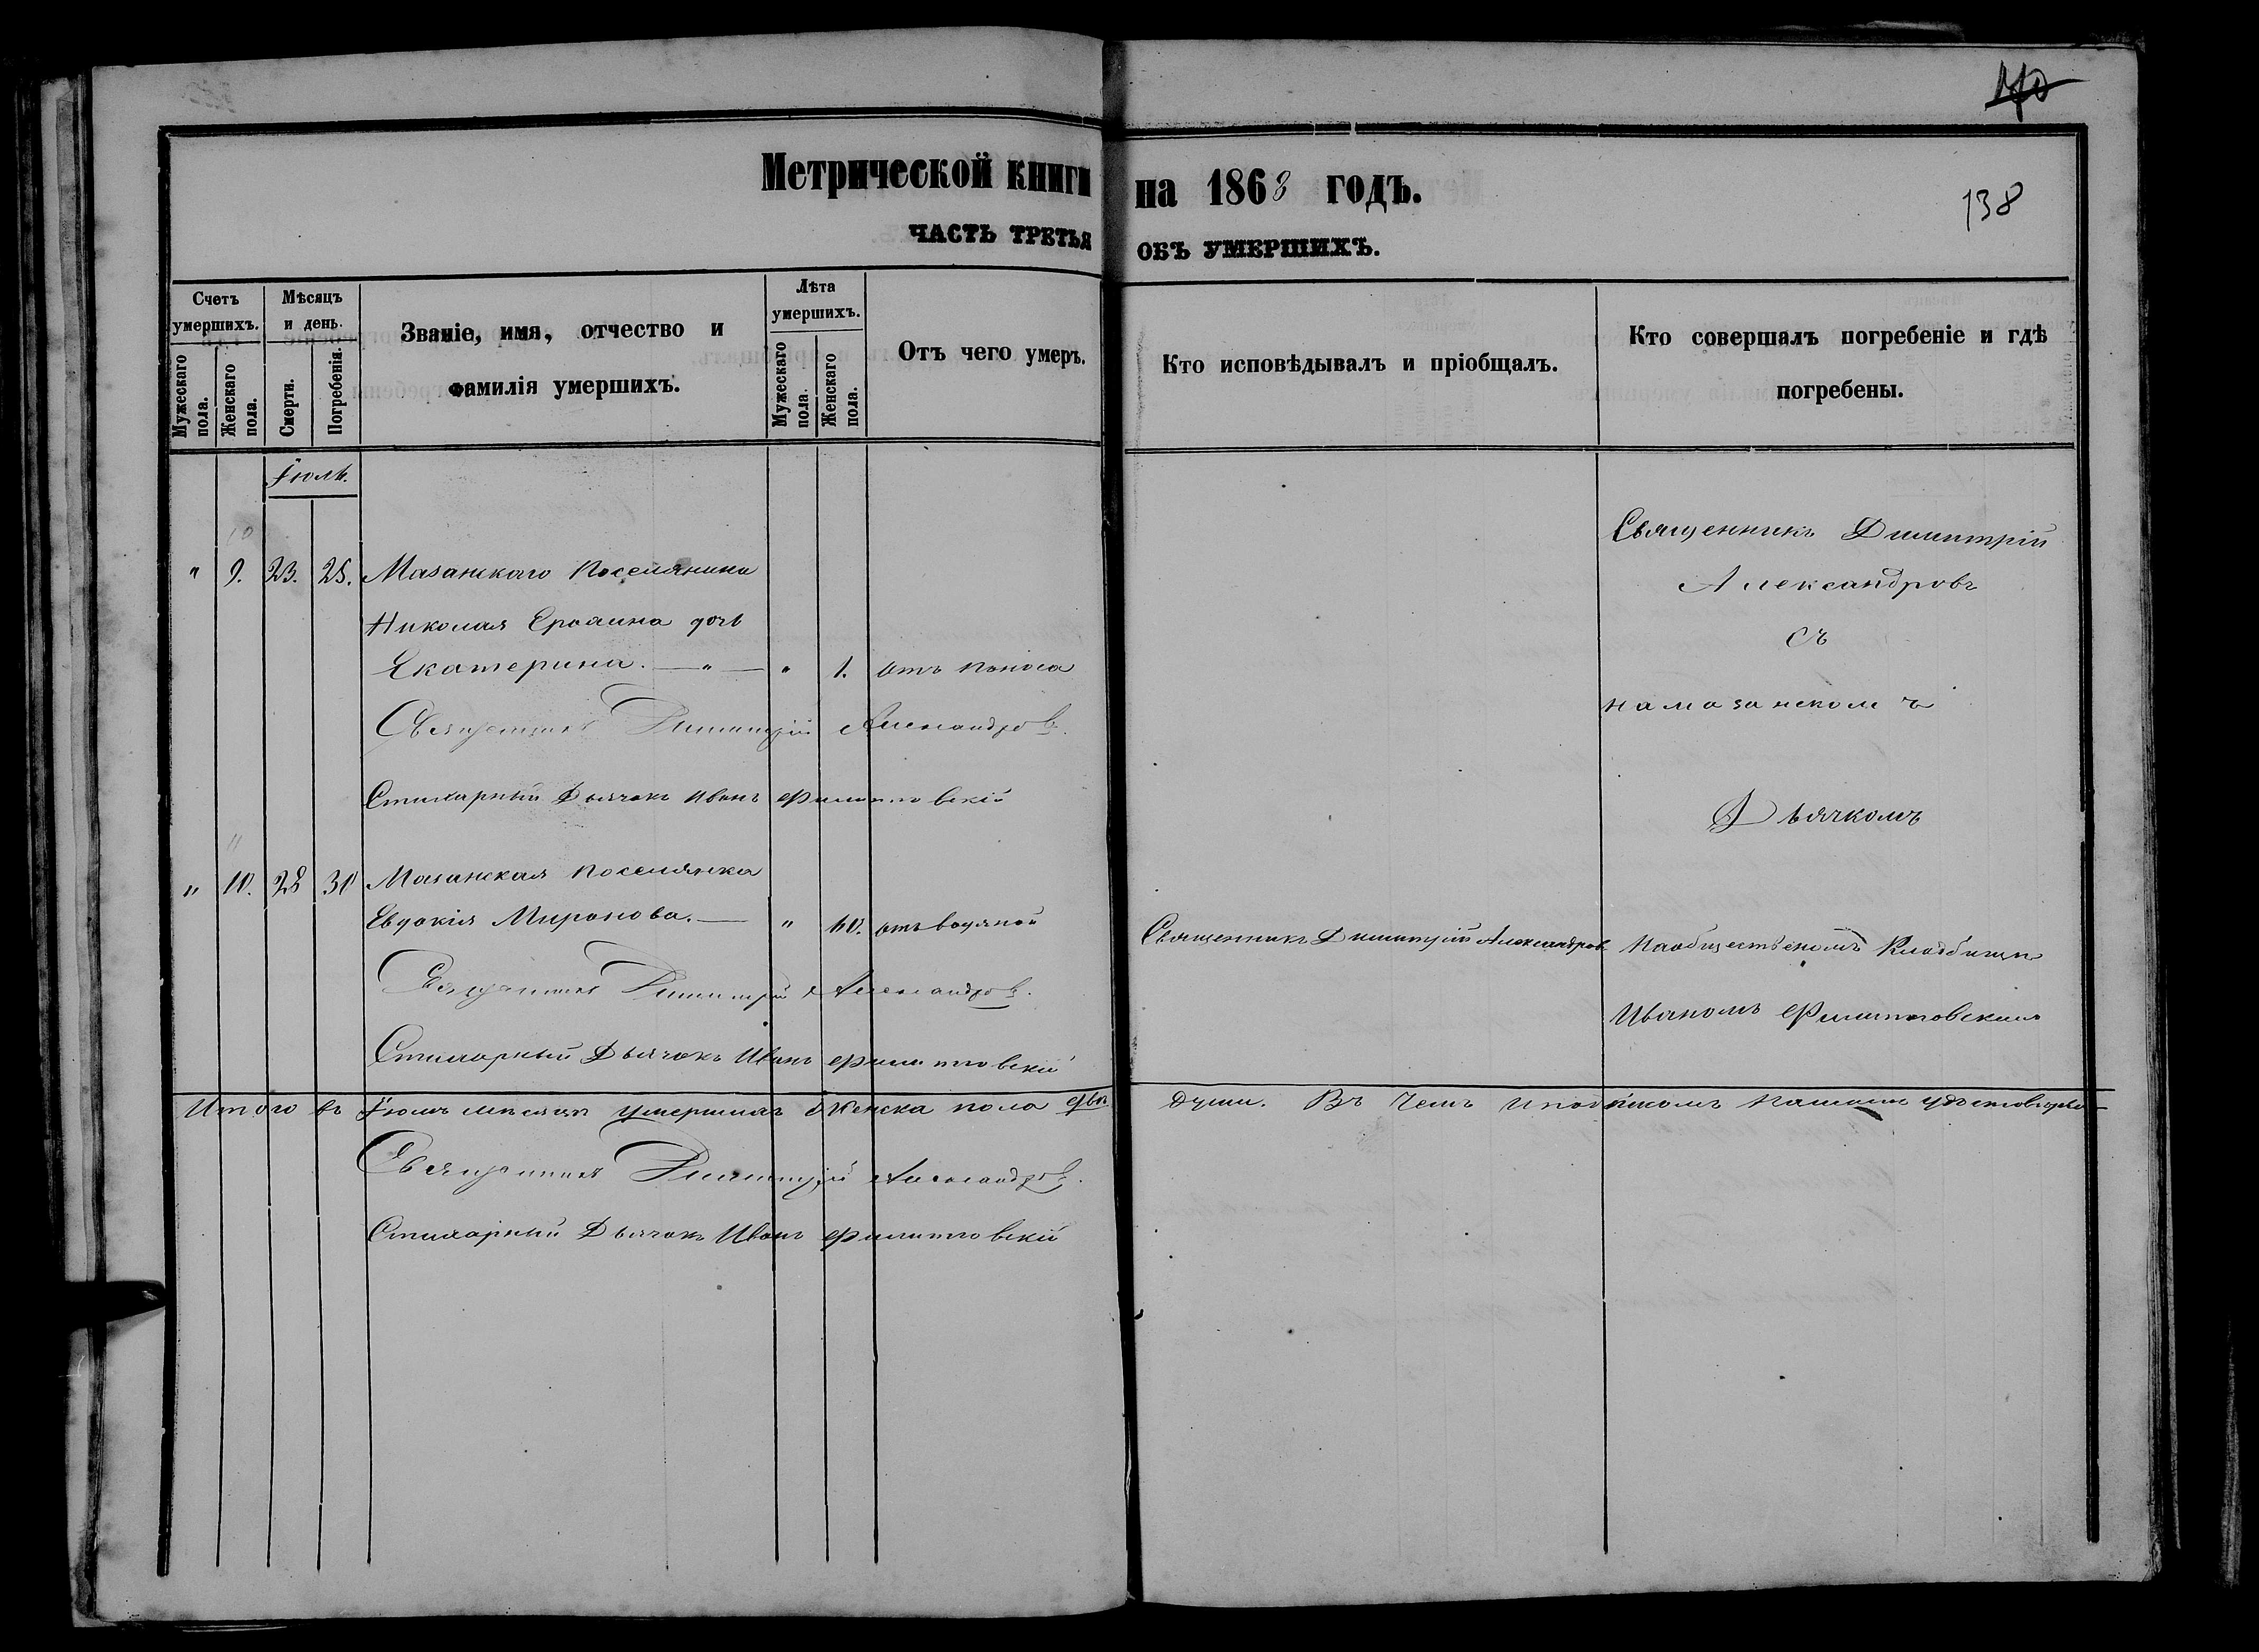 170
Метрической книги на 1863 годъ.
138
ЧАСТЬ ТРЕТЬЯ ОБЪ УМЕРШИХЪ.
Счетъ умершихъ.
Мужескаго пола.
Женскаго пола.
Мѣсяцъ и день.
Смерти.
Погребенія.
Званіе, имя, отчество и
фамилія умершихъ.
Лѣта умершихъ.
Мужескаго пола.
Женскаго пола.
Отъ чего умеръ.
Кто исповѣдывалъ и пріобщалъ.
Кто совершалъ погребеніе и гдѣ
погребены.
Іюль.
10
" 9. 23. 25. Мазанскаго поселянина
Николая дочь
Екатерина. — " — " 1. отъ поноса
Священникъ Димитрій Александровъ.
Стихарный Дьячокъ Иванъ Филипповскій
11
" 10. 28 30 Мазанская поселянка
Евдокія Миронова. — " 60. отъ водяной
Священникъ Димитрій Александровъ
Священникъ Димитрій Александровъ.
Стихарный Дьячокъ Иванъ Филипповскій
Священникъ Димитрій
Александровъ
съ
на мазанскомъ
Дьячкомъ
На общественомъ Кладбищи
Иваномъ Филипповскимъ
Итого въ Іюлѣ мѣсяцѣ умершихъ женска пола двѣ души. Въ чемъ и
Священникъ Димитрій Александровъ.
Стихарный Дьячокъ Иванъ Филипповскій